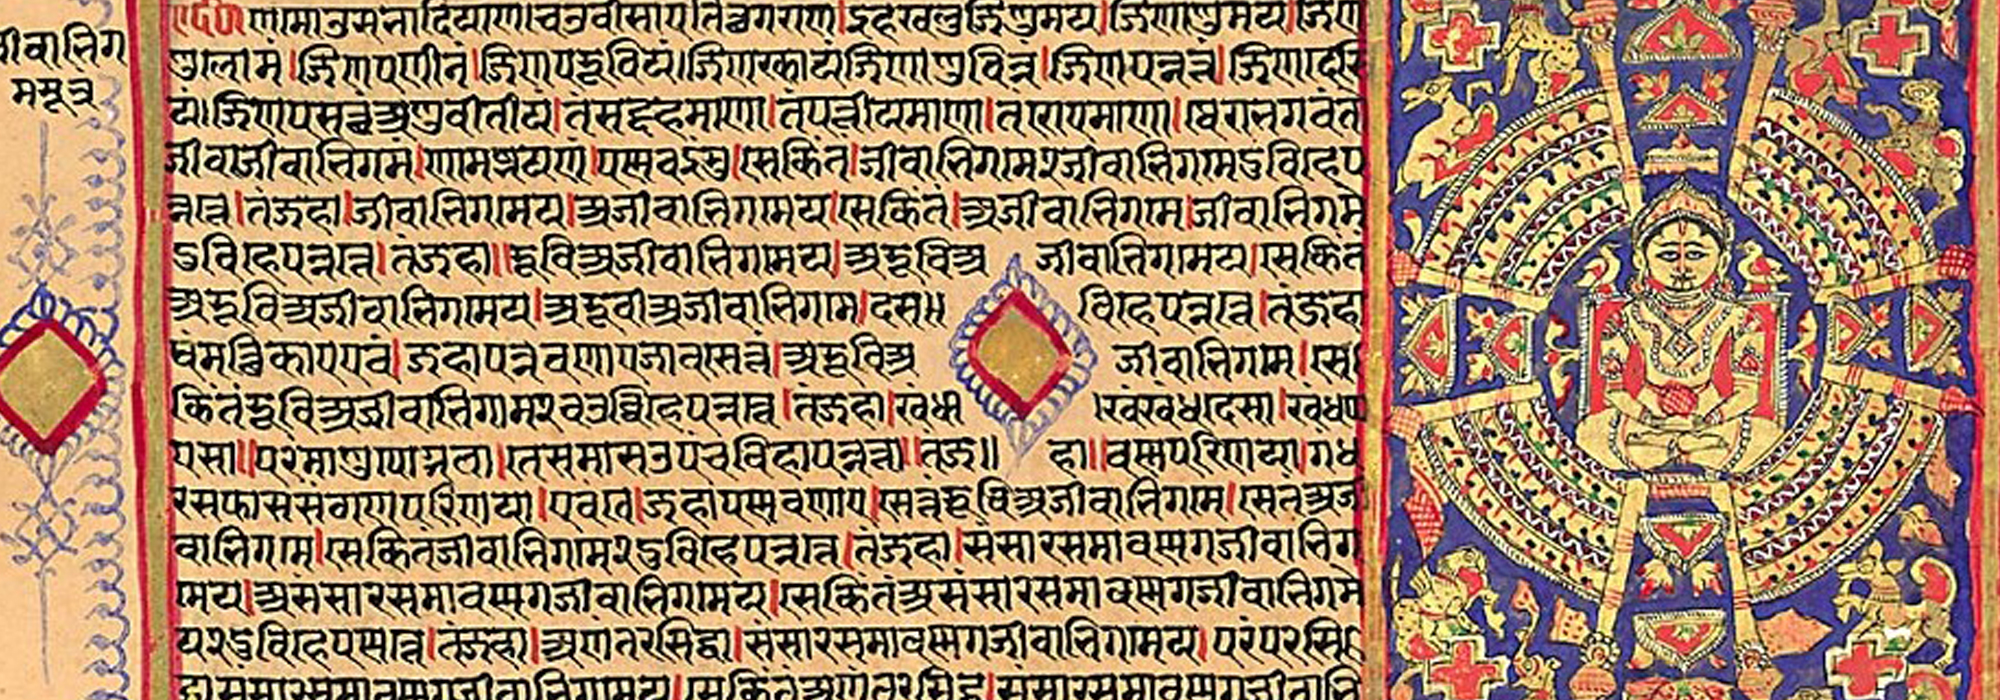 जीवाभिग
मसूत्र
णमो उसभादियाणं चउवीसाए तित्थगराणं। इह खलु जिणमयं। जिणाणुमयं। जिण
णुलोमं। जिणपणीतं। जिणपरूवियं। जिणक्खायं जिणाणुचिन्नं। जिणपन्नत्तं। जिणदेसि
यं। जिणपसत्थं अणुवीतीयं। तं सद्दहमाणा। तं पत्तीयमाणा। तं रोएमाणा। थेरा भगवंतो
जीवाजीवाभिगमं। णामज्झयणं। पण्णवइंसु। से किं तं। जीवाभिगमे २ जीवाभिगमे दुविहे प
न्नत्ते। तं जहा। जीवाभिगमे य। अजीवाभिगमे य। से किं तं। अजीवाभिगमे। जीवाभिगमे
दुविहे पन्नत्ते। तं जहा॥ रूविअजीवाभिगमे य। अरूविअ जीवाभिगमे य। से किं तं
अरूविअजीवाभिगमे य। अरूवीअजीवाभिगमे। दस विहे पन्नत्ते। तं जहा
धम्मत्थिकाए एवं। जहा पन्नवणाए जाव से त्तं। अरूविअ जीवाभिगमे। से
किं तं रूविअजीवाभिगमे २ चउव्विहे पन्नत्ते। तं जहा। खंधा। खंधदेसा। खंधप
एसा॥ परमाणुपोग्गला। ते समासउ पंचविहा पन्नत्ता॥ तं ज॥ हा॥ वण्णपरिणया। गंध
रस फास संठाणपरिणया। एवं ते। जहा पण्णवणाए। से त्तं रूविअजीवाभिगमे। से तं अजी
वाभिगमे। से किं तं जीवाभिगमे २ दुविहे पन्नत्ते। तं जहा। संसारसमावण्णगजीवाभिग
मे य। असंसारसमावण्णगजीवाभिगमे य। से किं तं असंसारसमावण्णगजीवाभिगमे
य २ दुविहे पण्णत्ते। तं जहा। अणंतरसिद्धा। संसारसमावण्णगजीवाभिगमे य। परंपरसि